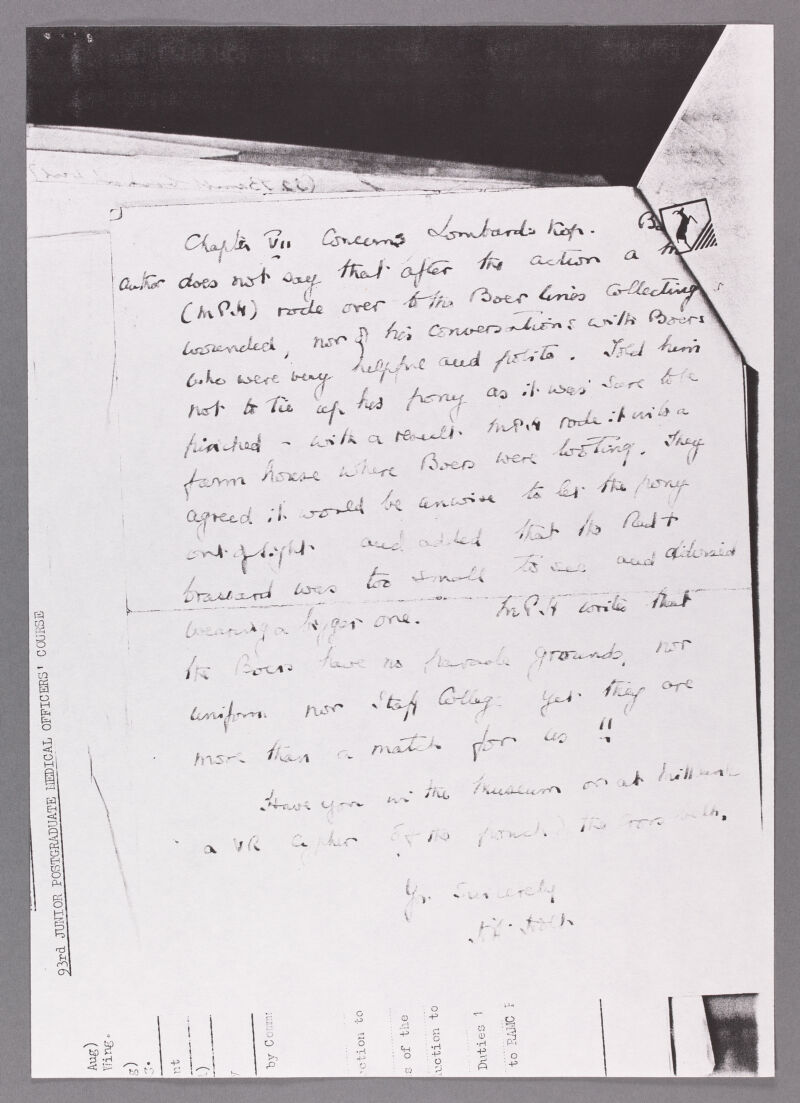 Chapter VII Concerns Lombards Kop.
author does not say that after the action a
(M.P.H) rode over to the Boer lines collecting
wounded, nor of his conversations with Boers
who were very helpful and polite. Told him
not to tie up his pony as it was sure to be
pinched - with a result M.P.H rode it into a
farm house where Boers were looting. They
agreed it would be unwise to let the pony
out of sight and added that the Red +
brassard was too small to see and advised
wearing a bigger one. M.P.H writes that
the Boers have no parade grounds, nor
uniform nor Staff College yet they are
more than a match for us !!
Have you in the Museum or at Millbank
a VR Cypher of the pouch the
Yr. Sincerely
93rd JUNIOR POSTGRADUATE MEDICAL OFFICERS' COURSE
Aug)
Wing.
by Comm
ction to
s of the
uction to
Duties 1
to RAMC